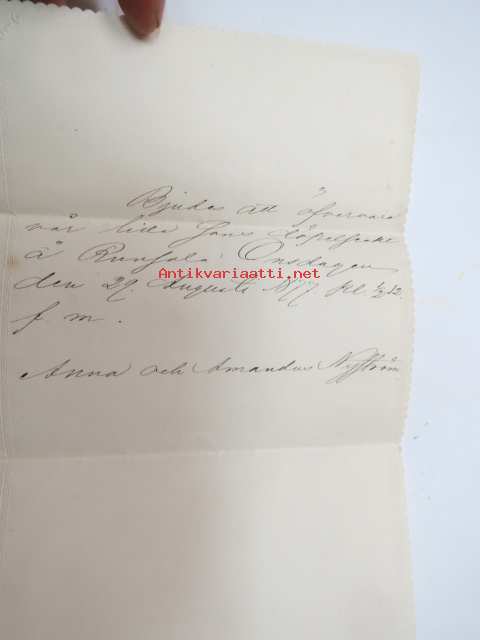 Bjudes att öfvervara
vår lilla Janes döpelseakt
å Runsala Onsdagen
Antikvariaatti.net
den 29 Augusti kl. ½ 12.
f. m.
Anna och Amandus Nyström